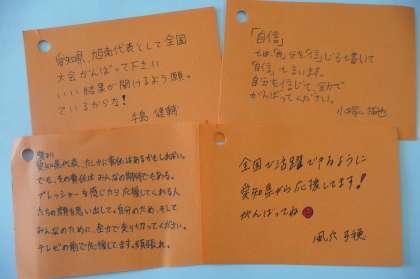 愛知県、旭南代表として全国
大会がんばって下さい
いい結果が聞けるよう願っ
ているからな!
健輔
「自信」
とは、自分を「信」じると書いて
「自信」と言います。
自分を信じて、全力で
がんばってください。
愛知県代表、たしかに責任はあるかもしれない。
でも、その責任はみんなの期待でもある。
プレッシャーを感じたら応援してくれる人
たちの顔を思い出して。自分のため、そして
みんなのために、全力で走り切ってください。
テレビの前で応援してます。頑張れ。
全国で活躍できるように
愛知県から応援してます!
がんばってね